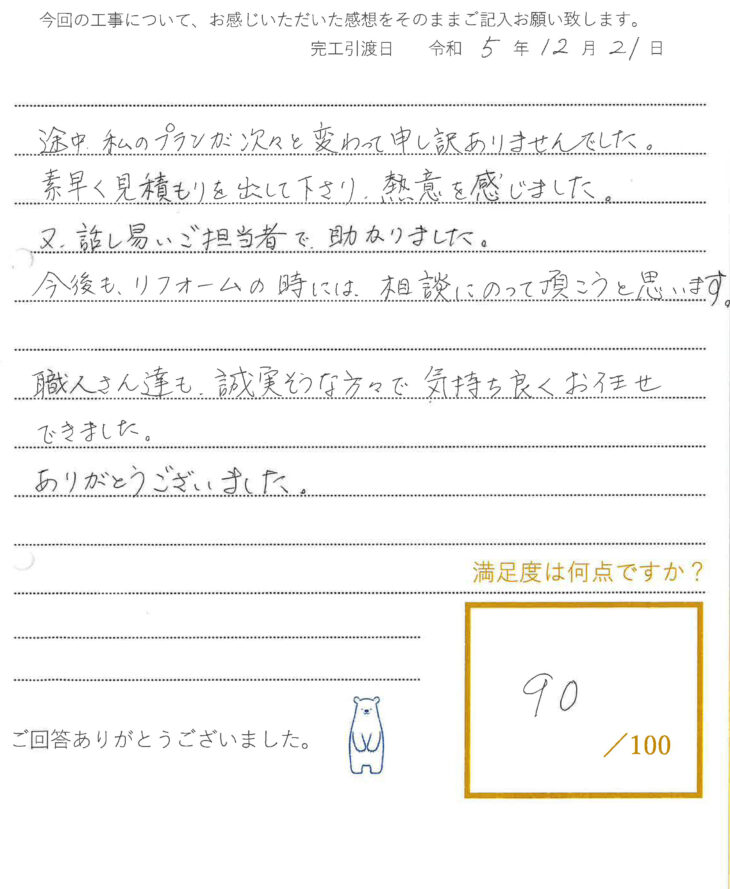 今回の工事について、お感じいただいた感想をそのままご記入お願い致します。
完工引渡日 令和 5 年 12 月 21 日
途中、私のプランが次々と変わって申し訳ありませんでした。
素早く見積もりを出して下さり、熱意を感じました。
又、話し易いご担当者で、助かりました。
今後も、リフォームの時には、相談にのって頂こうと思います。
職人さん達も、誠実そうな方々で気持ち良くお任せ
できました。
ありがとうございました。
満足度は何点ですか？
90
／100
ご回答ありがとうございました。